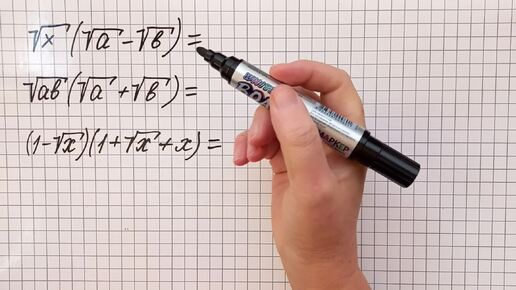 √x (√a − √b) =
√ab (√a + √b) =
(1 − √x)(1 + √x + x) =
МАРКЕР